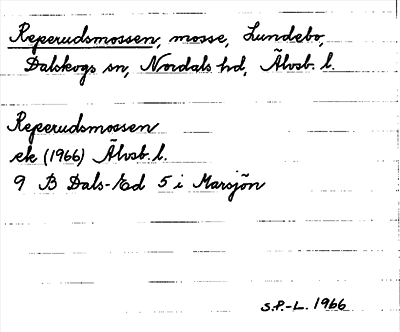 Reperudsmossen, mosse, Lundebo,
Dalskogs sn, Nordals hd, Älvsb. l.
Reperudsmossen
ek (1966) Älvsb. l.
9 B Dals-Ed 5 i Marsjön
S.P.-L. 1966